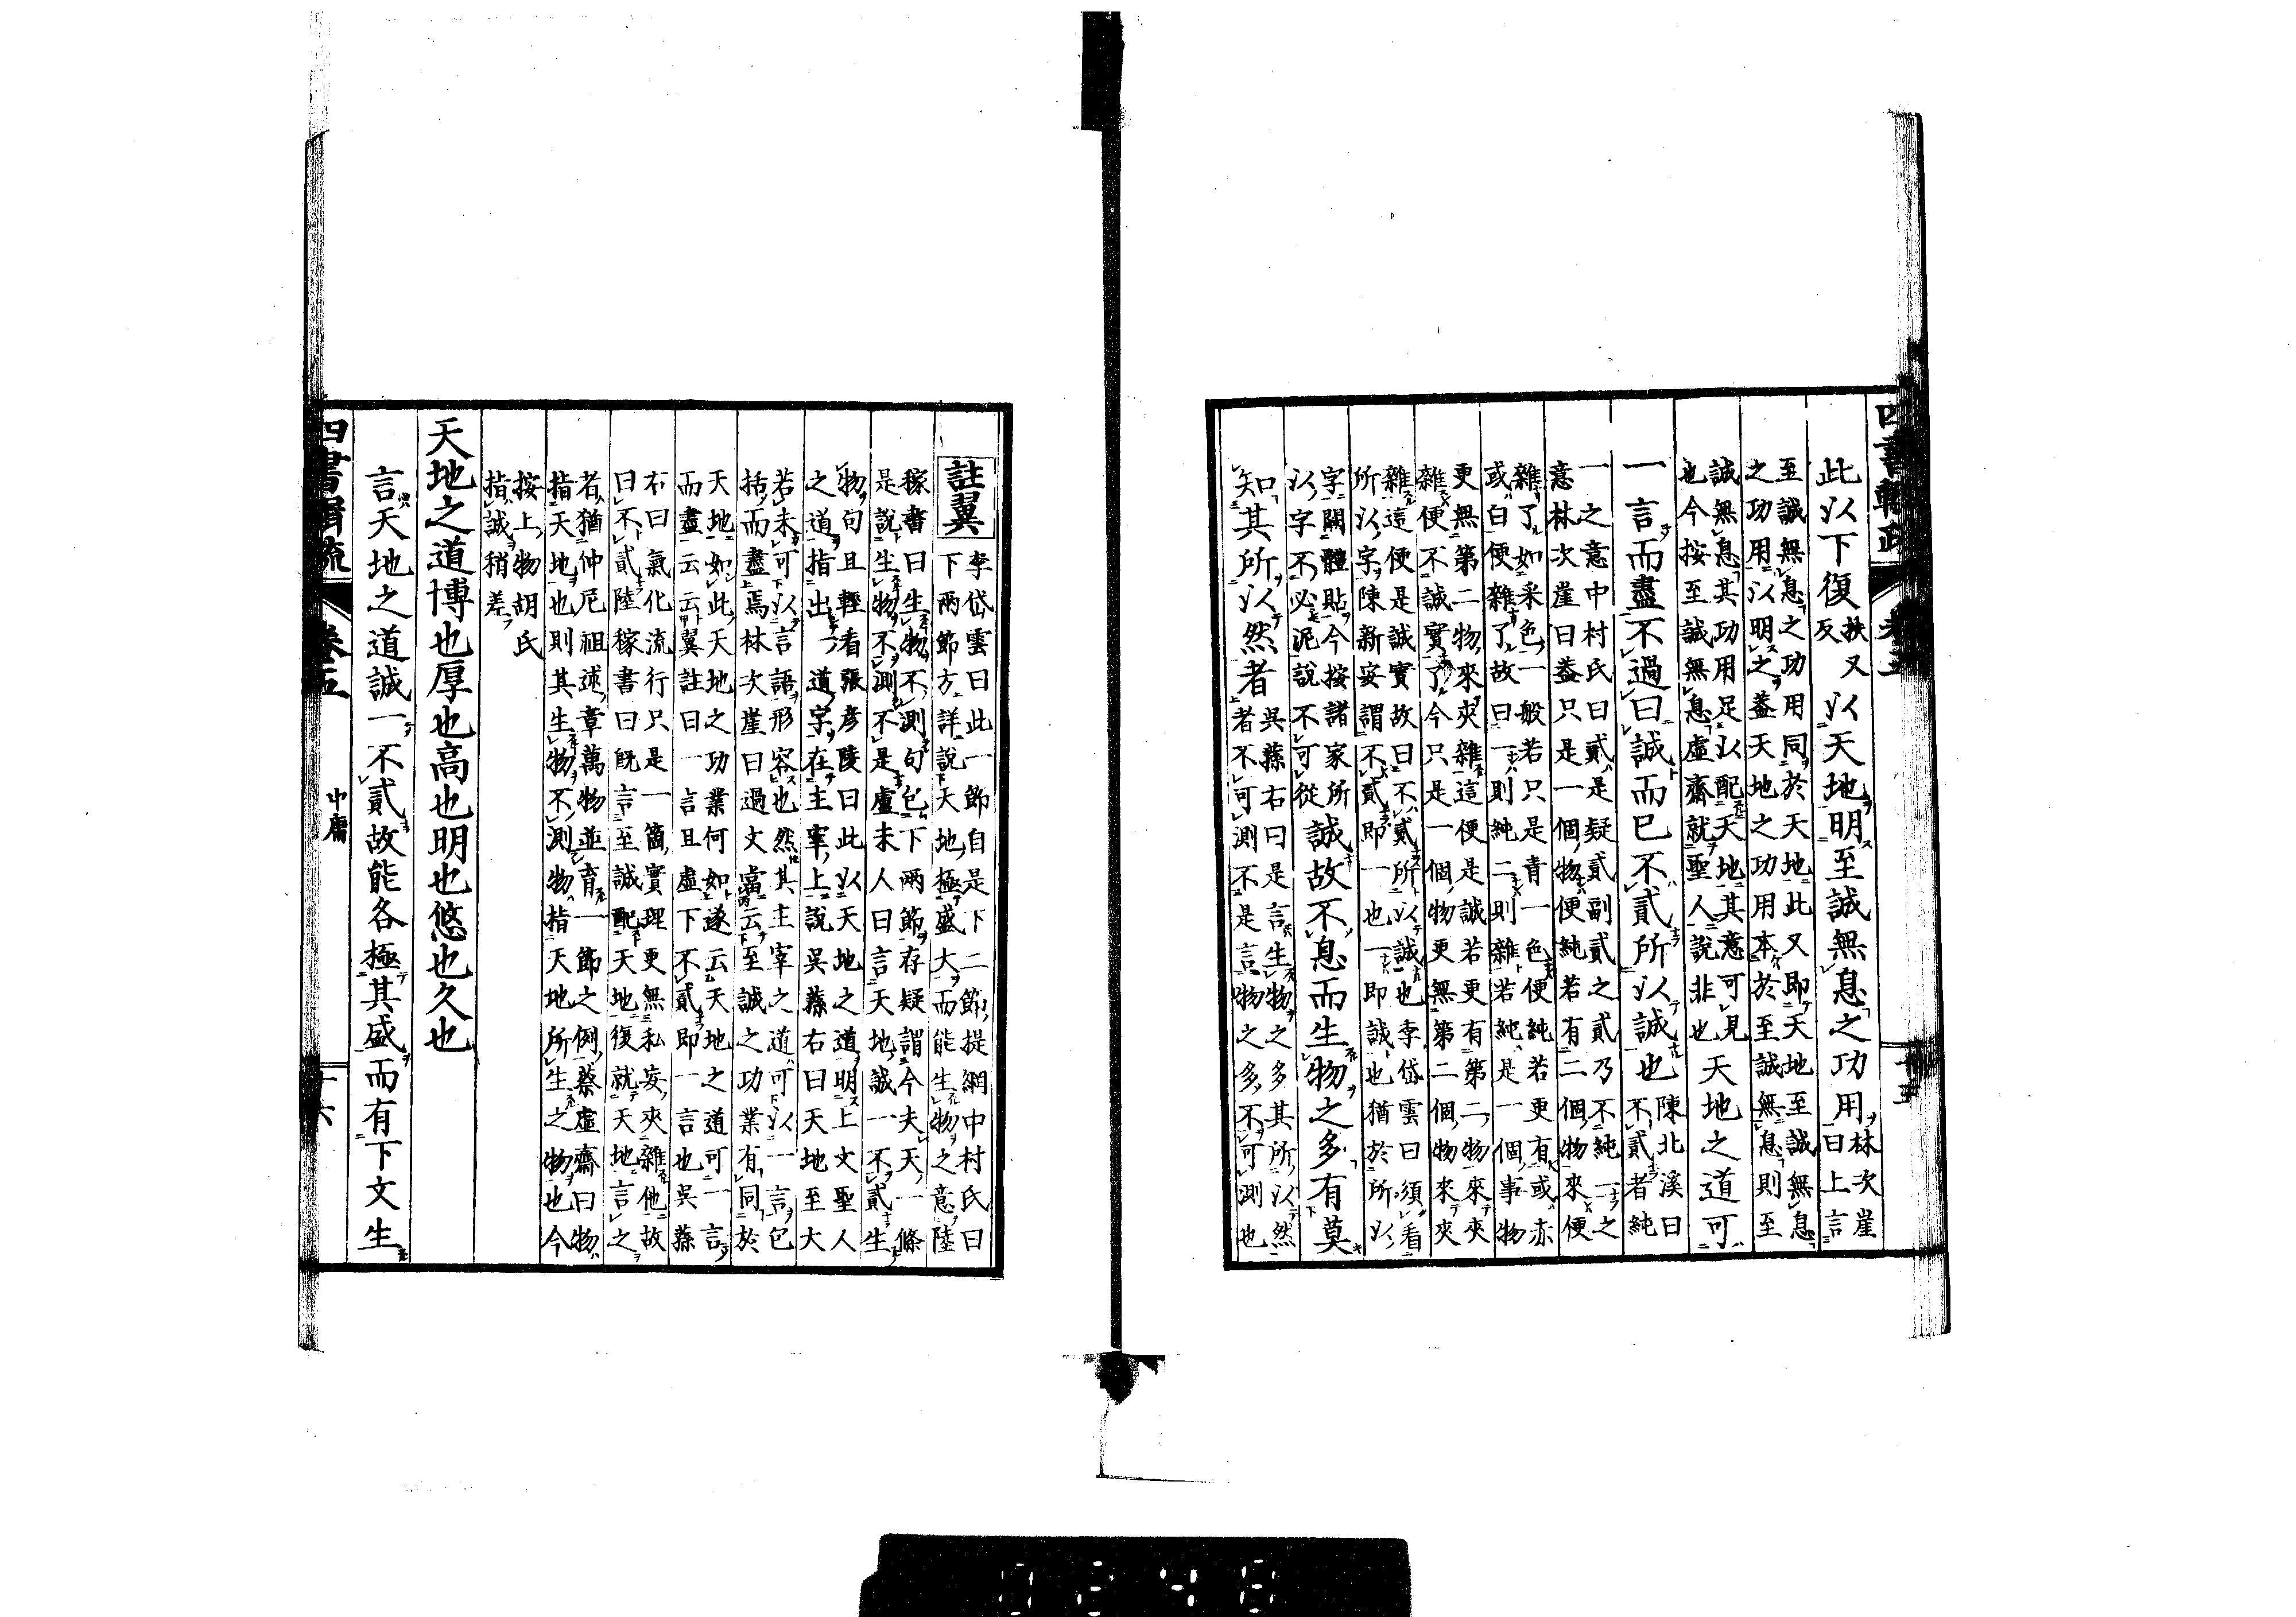 四書輯疏 卷五 十五
此以下復扶又反以天地明至誠無息之功用林次崖曰上言
至誠無息之功用同於天地此又即天地至誠無息
之功用以明之蓋天地之功用本於至誠無息則至
誠無息其功用足以配天地其意可見
也今按至誠無息虛齋就聖人說非也天地之道可
一言而盡不過曰誠而已不貳所以誠也陳北溪曰不貳者純
一之意中村氏曰貳是疑貳副貳之貳乃不純一之
意林次崖曰蓋只是一個物便純若有二個物來便
雜了如采色一般若只是青一色便純若更有或赤
或白便雜了故曰一則純二則雜若純是一個事物
更無第二物來夾雜這便是誠若更有第二物來夾
雜便不誠實了今只是一個物更無第二個物來夾
雜這便是誠實故曰不貳所以誠也李岱雲曰須看
所以字陳新安謂不貳即一也一即誠也猶於所以
字關體貼今按諸家所
以字不必泥說不可從誠故不息而生物之多有莫
知其所以然者吳蓀右曰是言生物之多其所以然
者不可測不是言物之多不可測也
註翼李岱雲曰此一節自是下二節提綱中村氏曰
下兩節方詳說天地極盛大而能生物之意陸
稼書曰生物不測句包下兩節存疑謂今夫天一條
是說生物不測不是盧未人曰言天地誠一不貳生
物句且輕看張彥陵曰此以天地之道明上文聖人
之道指出一道字在主宰上說吳蓀右曰天地至大
若未可以言語形容也然其主宰之道可以一言包
括而盡焉林次崖曰過文當云至誠之功業有同於
天地如此天地之功業何如遂云天地之道可一言
而盡云云翼註曰一言且虛下不貳即一言也吳蓀
右曰氣化流行只是一箇實理更無私妄夾雜他故
曰不貳陸稼書曰既言至誠配天地復就天地言之
者猶仲尼祖述章萬物並育一節之例蔡虛齋曰物
指天地也則其生物不測物指天地所生之物也今
按上物胡氏
指誠稍差
天地之道博也厚也高也明也悠也久也
言天地之道誠一不貳故能各極其盛而有下文生
四書輯疏 卷五 中庸 十六